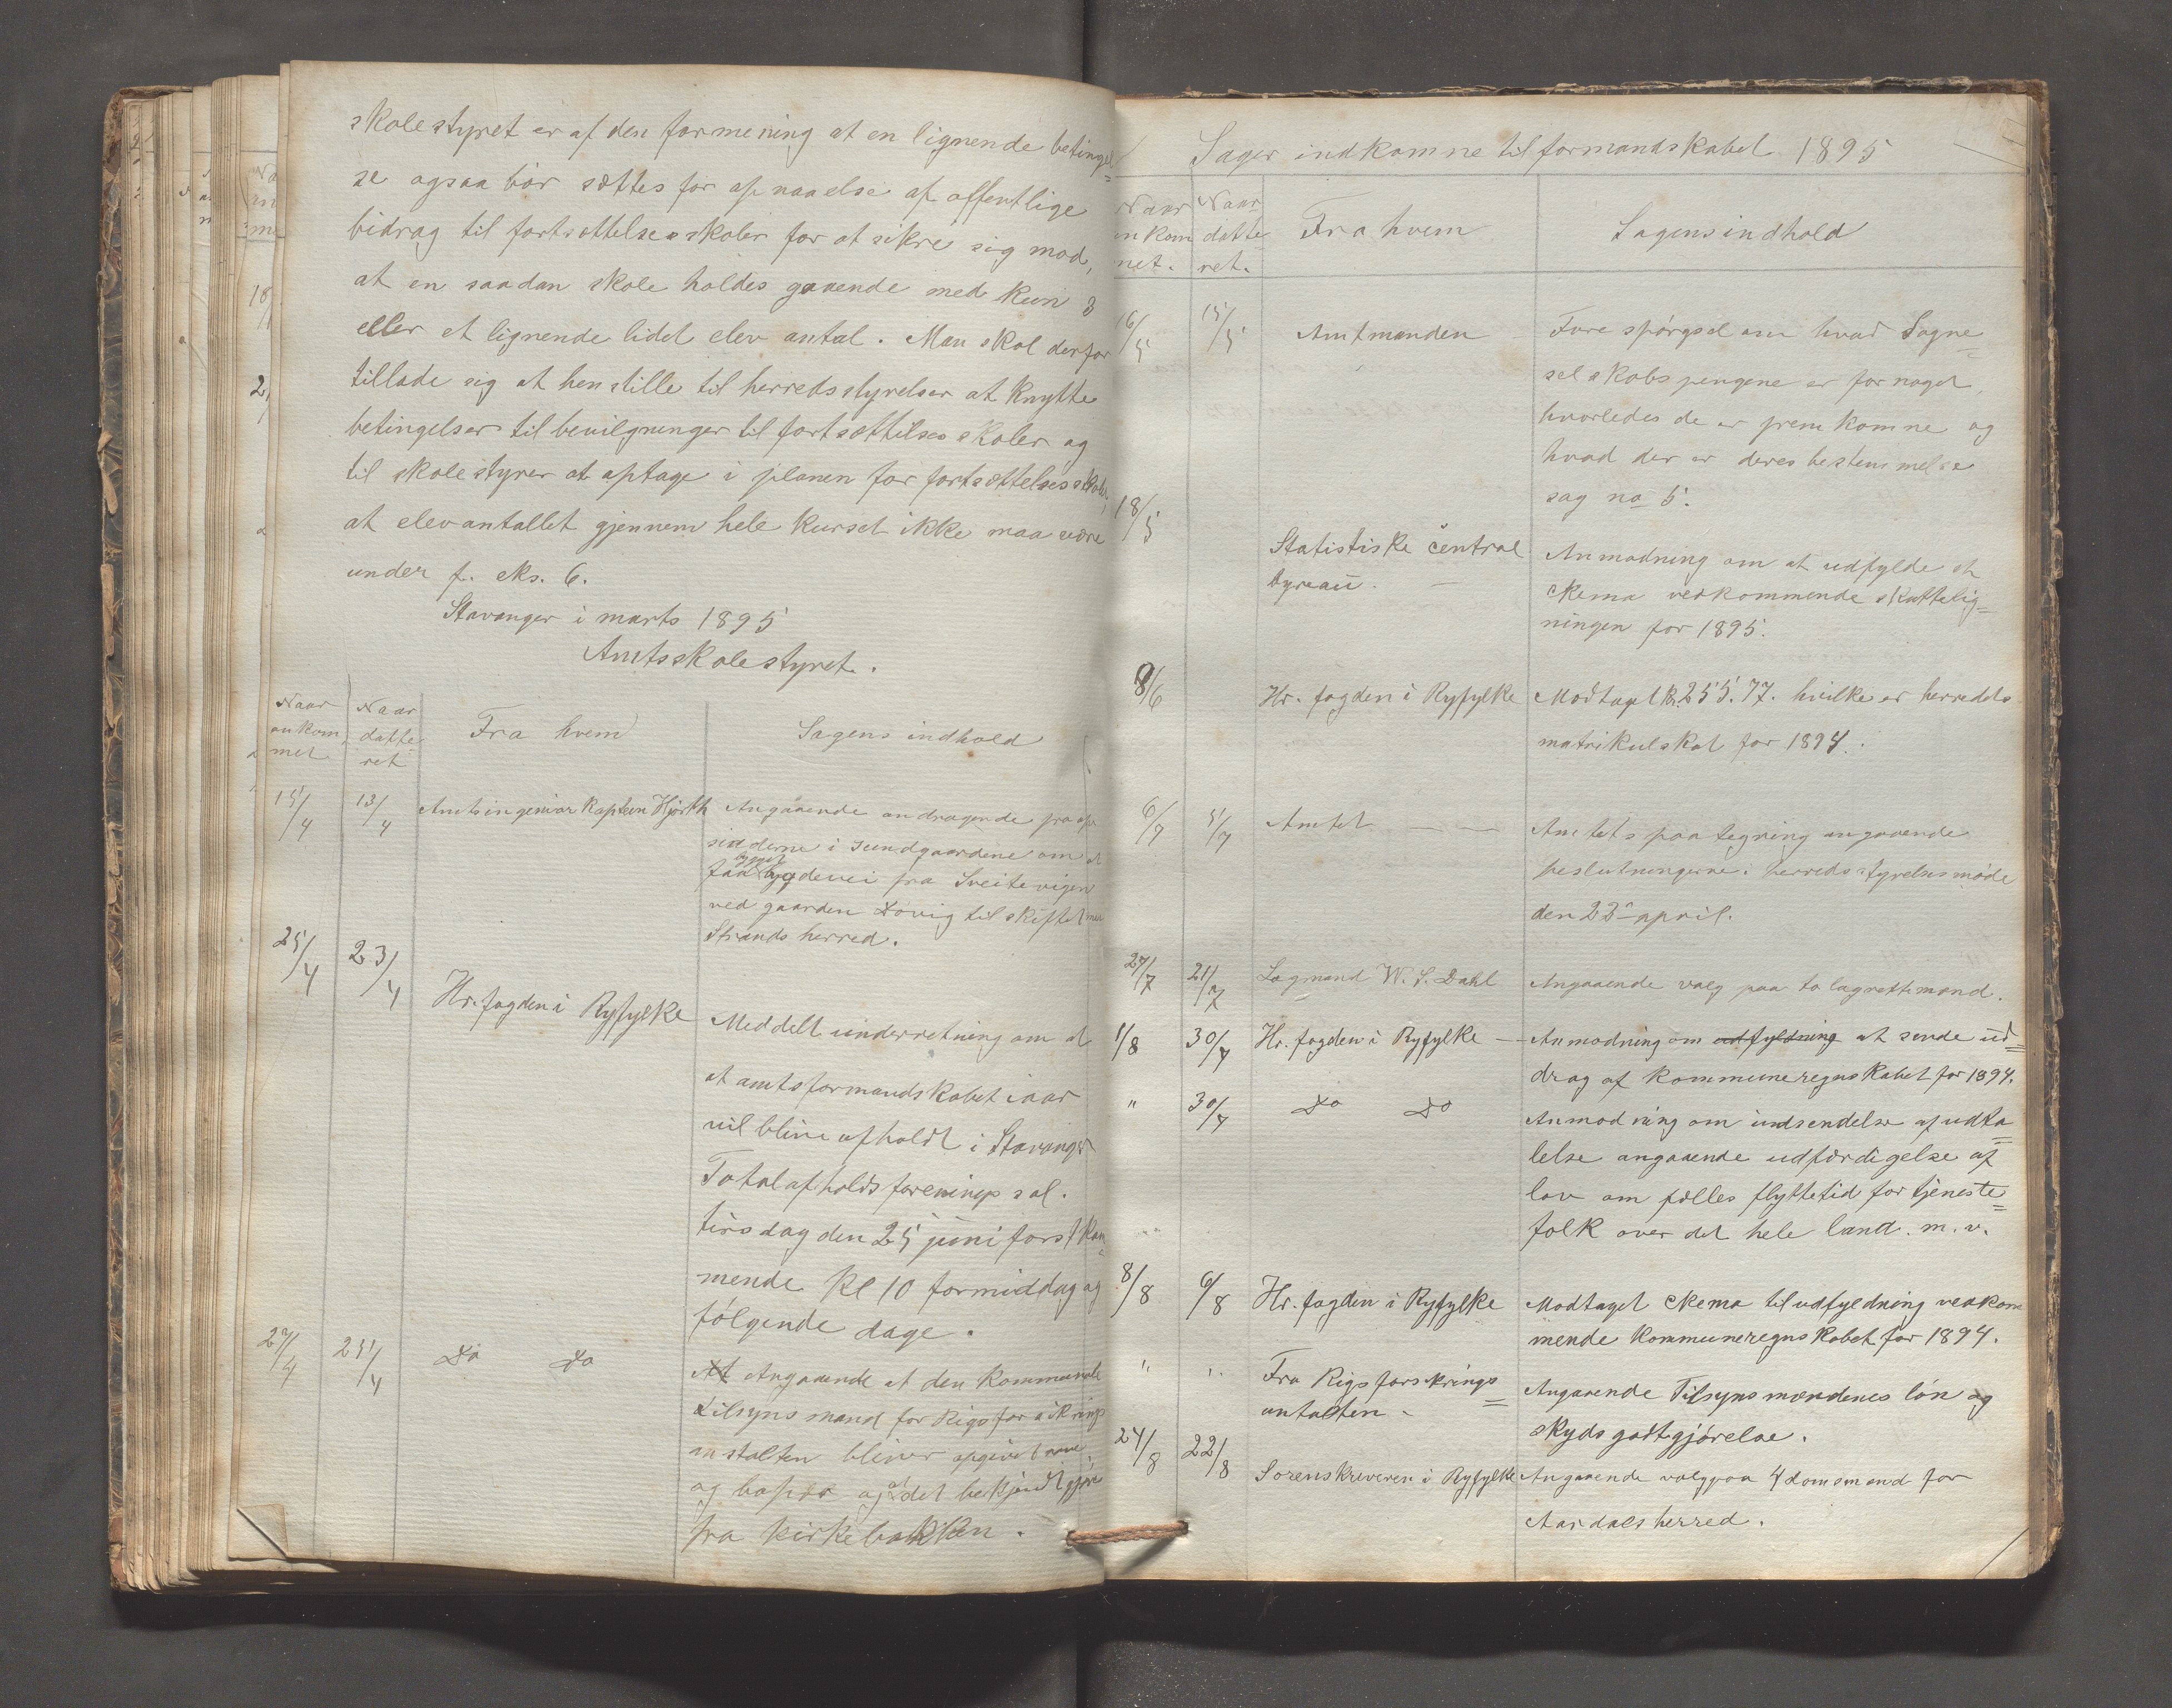 skolestyret er af den formening at en lignende betingel=
se ogsaa bör sættes for opnaaelse af offentlige
bidrag til fortsættelsesskoler for at sikre sig mod,
at en saadan skole holdes gaaende med kun 3
eller et lignende lidet elev antal. Man skal derfor
tillade sig at henstille til herredsstyrelser at knytte
betingelser til bevilgninger til fortsættelses skoler og
til skolestyrer at optage i planen for fortsættelsesskoler,
at elevantallet gjennem hele kurset ikke maa være
under f. eks. 6.
Stavanger i marts 1895
Amtsskolestyret.
Naar ankom met
Naar datte ret
Fra hvem
Sagens indhold
15/4 13/4 Amtsingeniør Kaptein Hjorth Angaaende andragende fra op
sidderne i Sundgaardene om at
faa bygdevei fra Sveitevigen
ved gaarden Døvig til skiftet med
Strands herred.
25/4 23/4 Hr. fogden i Ryfylke Meddelt underretning om at
at amtsformandskabet iaar
vil blive afholdt i Stavanger
Totalafholdsforenings sal.
tirsdag den 25 juni førstkom=
mende kl 10 formiddag og
fölgende dage.
27/4 25/4 Do Do At Angaaende at den kommunale
tilsynsmand for Rigsforsikrings
anstalten bliver opgivet navn
og bopæl og at det bekjendtgjöres
fra kirkebakken.
Sager indkomne til formandskabet 1895
Naar ankom met.
Naar datte ret.
Fra hvem
Sagens indhold
16/5 15/5 Amtmanden Forespørgsel om hvad Sogne=
selskabs pengene er for noget,
hvorledes de er fremkomne og
hvad der er deres bestemmelse
sag no 5.
18/5 Statistiske Central Anmodning om at udfylde et
byreau. — skema vedkommende skattelig=
ningen for 1895.
8/6 Hr. fogden i Ryfylke Modtaget Kr. 255.77. hvilke er herredets
matrikulskat for 1894.
6/7 5/7 Amtet — — Amtets paategning angaaende
beslutningerne i herredsstyrelsesmöde
den 22 april.
27/7 21/7 Lagmand W. S. Dahl Angaaende valg paa to lagrettemænd.
1/8 30/7 Hr. fogden i Ryfylke — Anmodning om udfyldning at sende ud=
drag af kommuneregnskabet for 1894.
" 30/7 Do Do Anmodning om indsendelse af udta=
lelse angaaende udfærdigelse af
lov om fælles flyttetid for tjeneste=
folk over det hele land. m. v.
8/8 6/8 Hr. fogden i Ryfylke Modtaget skema til udfyldning vedkom
mende kommuneregnskabet for 1894.
" " Fra Rigsforsikrings= Angaaende Tilsynsmændenes lön og
antalten. skydsgodtgjörelse.
24/8 22/8 Sorenskriveren i Ryfylke Angaaende valg paa 4 domsmænd for
Aardals herred.